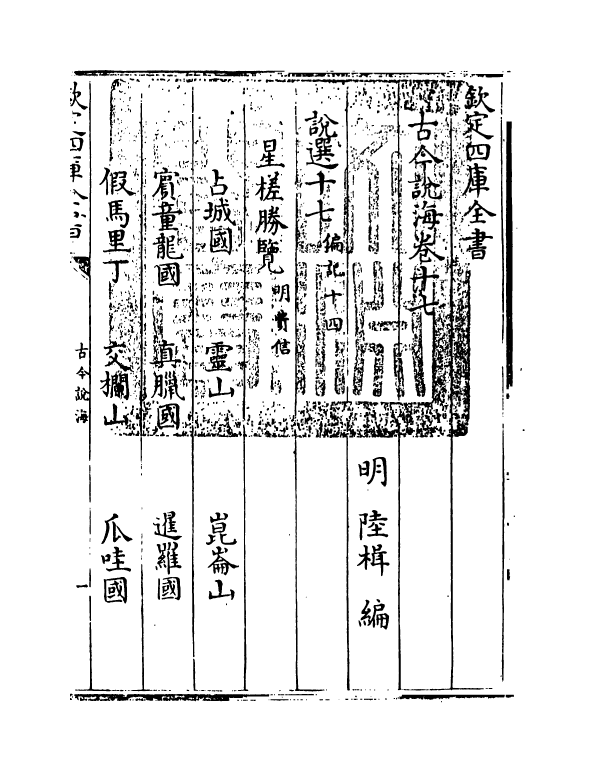 欽定四庫全書
古今說海卷十七
明 陸楫 編
說選十七 偏記十四
星槎勝覽 明費信
占城國 靈山 崑崙山
賓童龍國 真臘國 暹羅國
假馬里丁 交欄山 爪哇國
欽定四庫全書 古今說海 一